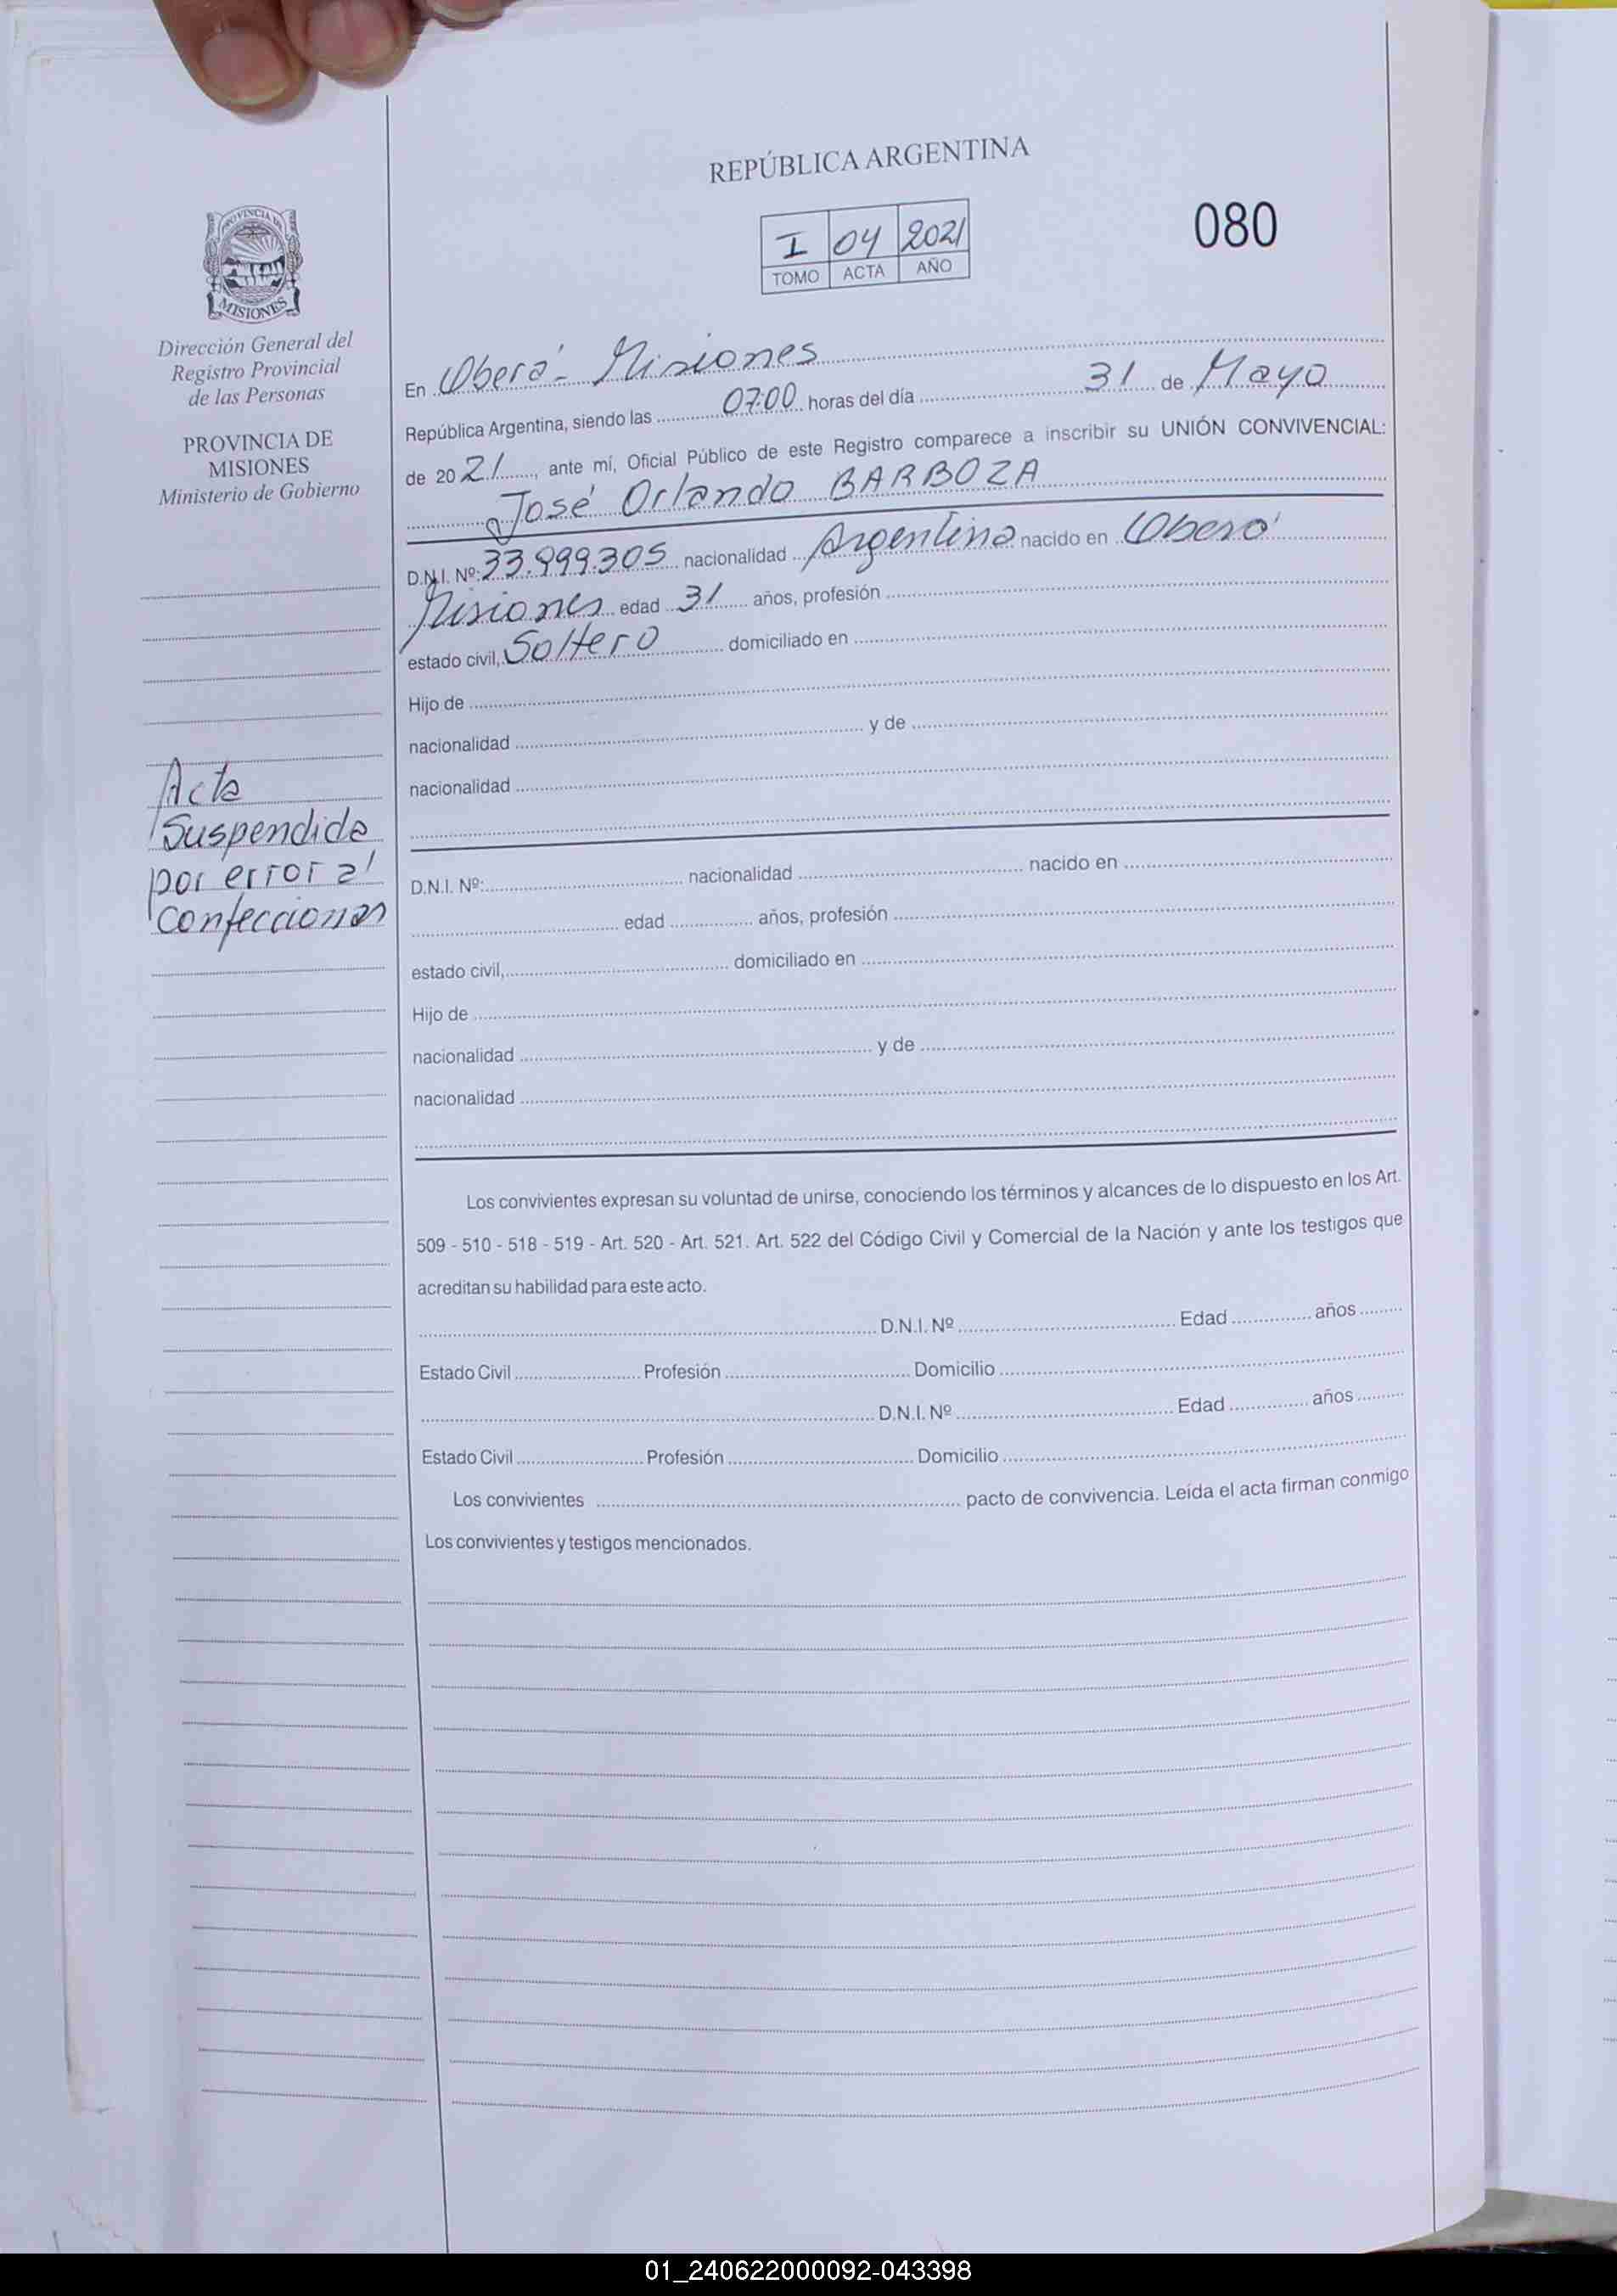 REPÚBLICA ARGENTINA
080
I 04 2021
TOMO ACTA AÑO
PROVINCIA DE
MISIONES
Dirección General del
Registro Provincial
de las Personas
PROVINCIA DE
MISIONES
Ministerio de Gobierno
Acta
Suspendida
por error al
confeccionar
En Oberá - Misiones
República Argentina, siendo las 07:00 horas del día 31 de Mayo
de 2021, ante mí, Oficial Público de este Registro comparece a inscribir su UNIÓN CONVIVENCIAL:
José Orlando BARBOZA
D.N.I. Nº: 33.999.305 nacionalidad Argentina nacido en Oberá
Misiones edad 31 años, profesión
estado civil, Soltero domiciliado en
Hijo de
nacionalidad y de
nacionalidad
D.N.I. Nº: nacionalidad nacido en
edad años, profesión
estado civil, domiciliado en
Hijo de
nacionalidad y de
nacionalidad
Los convivientes expresan su voluntad de unirse, conociendo los términos y alcances de lo dispuesto en los Art.
509 - 510 - 518 - 519 - Art. 520 - Art. 521. Art. 522 del Código Civil y Comercial de la Nación y ante los testigos que
acreditan su habilidad para este acto.
D.N.I. Nº Edad años
Estado Civil Profesión Domicilio
D.N.I. Nº Edad años
Estado Civil Profesión Domicilio
Los convivientes pacto de convivencia. Leída el acta firman conmigo
Los convivientes y testigos mencionados.
01_240622000092-043398